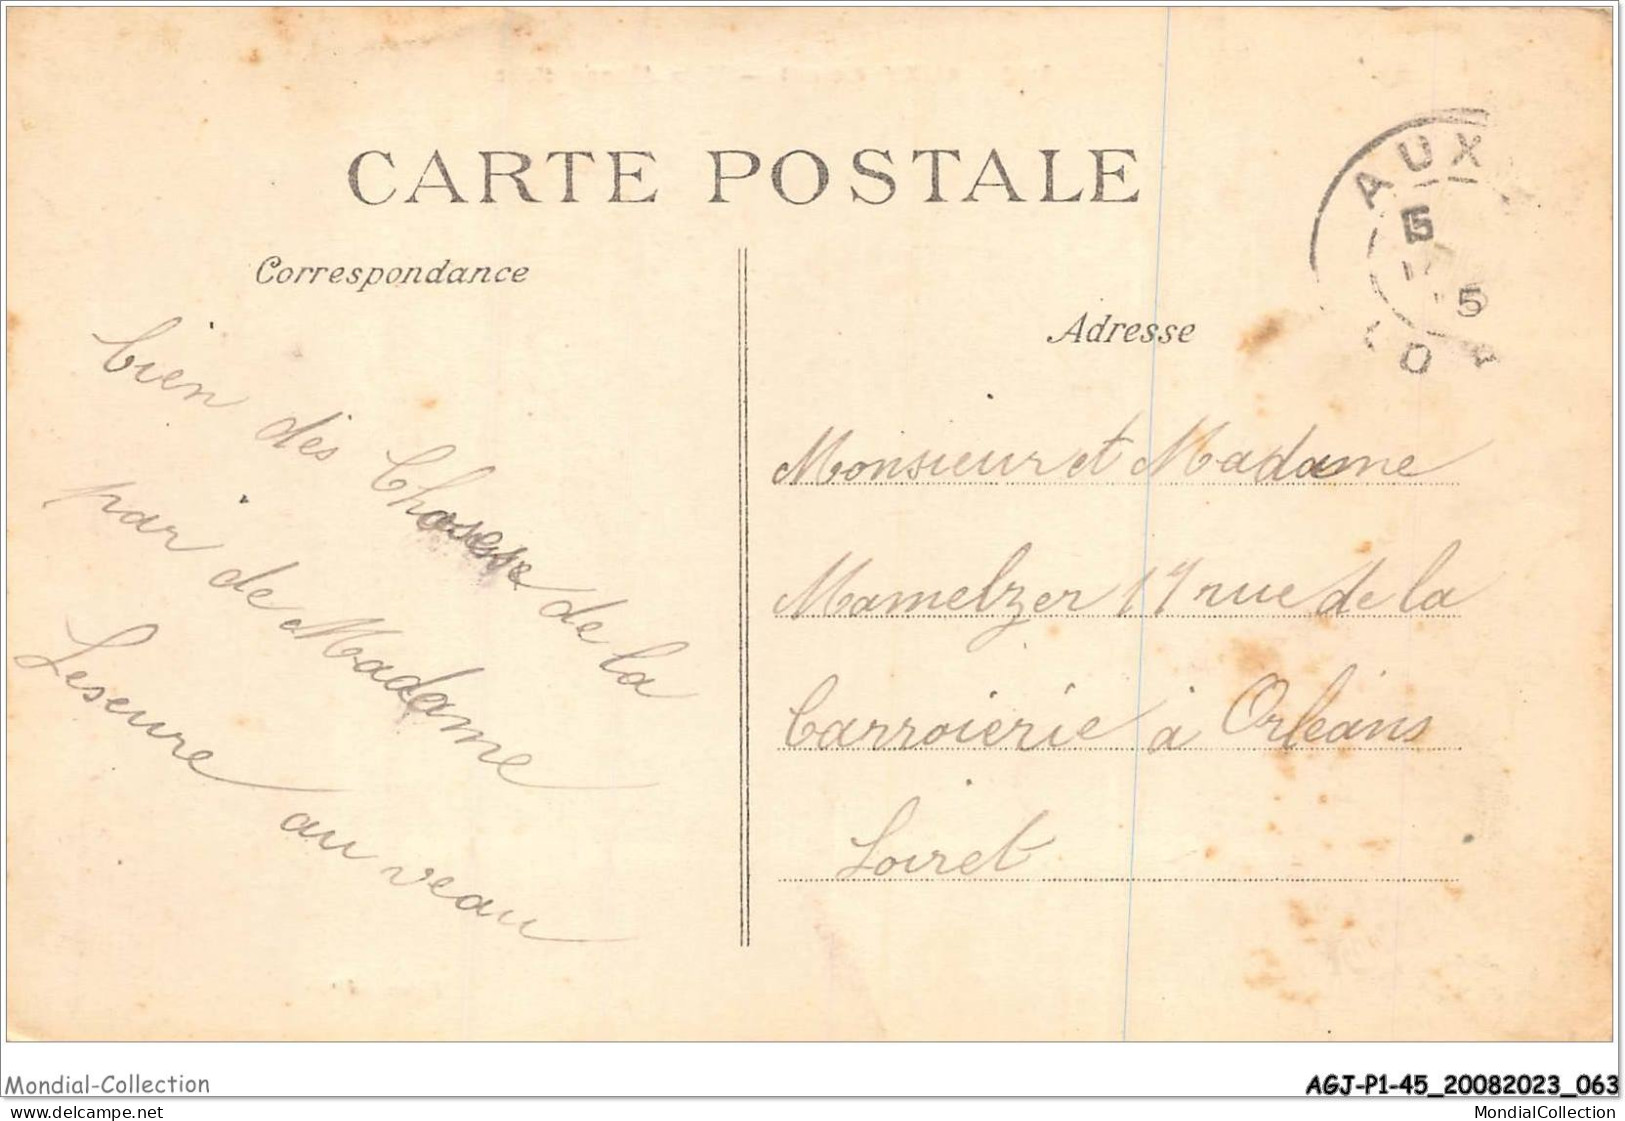 CARTE POSTALE
Correspondance
bien des Chosesse de la
par de Madame
Leseurre au veau
AUX
5
5
Adresse
Monsieur et Madame
Mamelzer 17 rue de la
Carroierie à Orleans
Loiret
Mondial-Collection
AGJ-P1-45_20082023_063
delcampe.net
MondialCollection